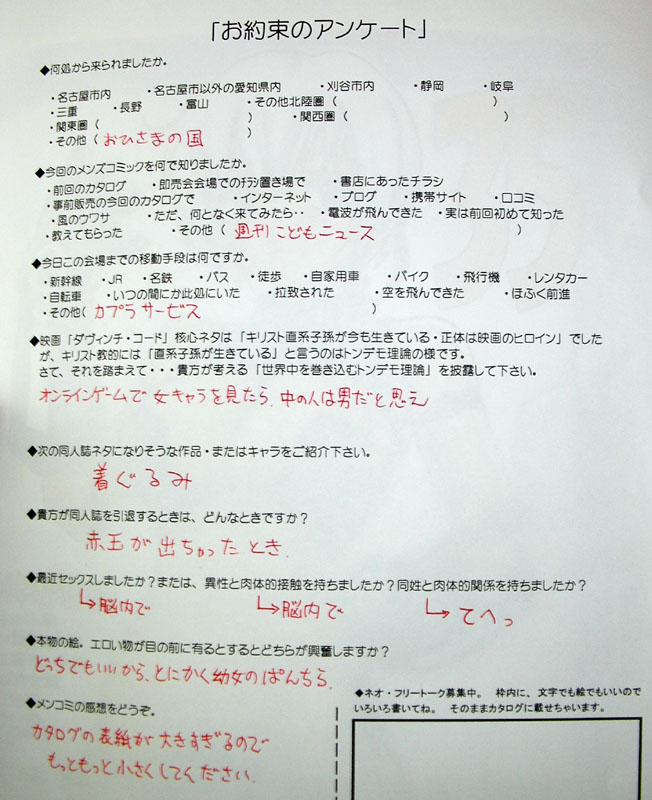 「お約束のアンケート」
◆何処から来られましたか。
・名古屋市内 ・名古屋市以外の愛知県内 ・刈谷市内 ・静岡 ・岐阜
・三重 ・長野 ・富山 ・その他北陸圏( )
・関東圏( ) ・関西圏( )
・その他(おひさまの国 )
◆今回のメンズコミックを何で知りましたか。
・前回のカタログ ・即売会会場でのチラシ置き場で ・書店にあったチラシ
・事前販売の今回のカタログで ・インターネット ・ブログ ・携帯サイト ・口コミ
・風のウワサ ・ただ、何となく来てみたら‥ ・電波が飛んできた ・実は前回初めて知った
・教えてもらった ・その他( 週刊こどもニュース )
◆今日この会場までの移動手段は何ですか。
・新幹線 ・JR ・名鉄 ・バス ・徒歩 ・自家用車 ・バイク ・飛行機 ・レンタカー
・自転車 ・いつの間にか此処にいた ・拉致された ・空を飛んできた ・ほふく前進
・その他( カプラサービス )
◆映画「ダヴィンチ・コード」核心ネタは「キリスト直系子孫が今も生きている・正体は映画のヒロイン」でした
が、キリスト教的には「直系子孫が生きている」と言うのはトンデモ理論の様です。
さて、それを踏まえて・・・貴方が考える「世界中を巻き込むトンデモ理論」を披露して下さい。
オンラインゲームで女キャラを見たら、中の人は男だと思え
◆次の同人誌ネタになりそうな作品・またはキャラをご紹介下さい。
着ぐるみ
◆貴方が同人誌を引退するときは、どんなときですか?
赤玉が出ちゃったとき.
◆最近セックスしましたか?または、異性と肉体的接触を持ちましたか?同姓と肉体的関係を持ちましたか?
↳脳内で ↳脳内で ↳てへっ
◆本物の絵。エロい物が目の前に有るとするとどちらが興奮しますか?
どっちでもいいから、とにかく幼女のぱんちら.
◆メンコミの感想をどうぞ。
カタログの表紙が大きすぎるので
もっともっと小さくしてください.
◆ネオ・フリートーク募集中。 枠内に、文字でも絵でもいいので
いろいろ書いてね。 そのままカタログに載せちゃいます。